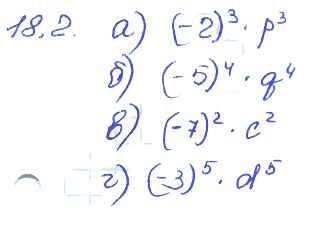 18.2. а) (-2)³ · p³
б) (-5)⁴ · q⁴
в) (-7)² · c²
г) (-3)⁵ · d⁵